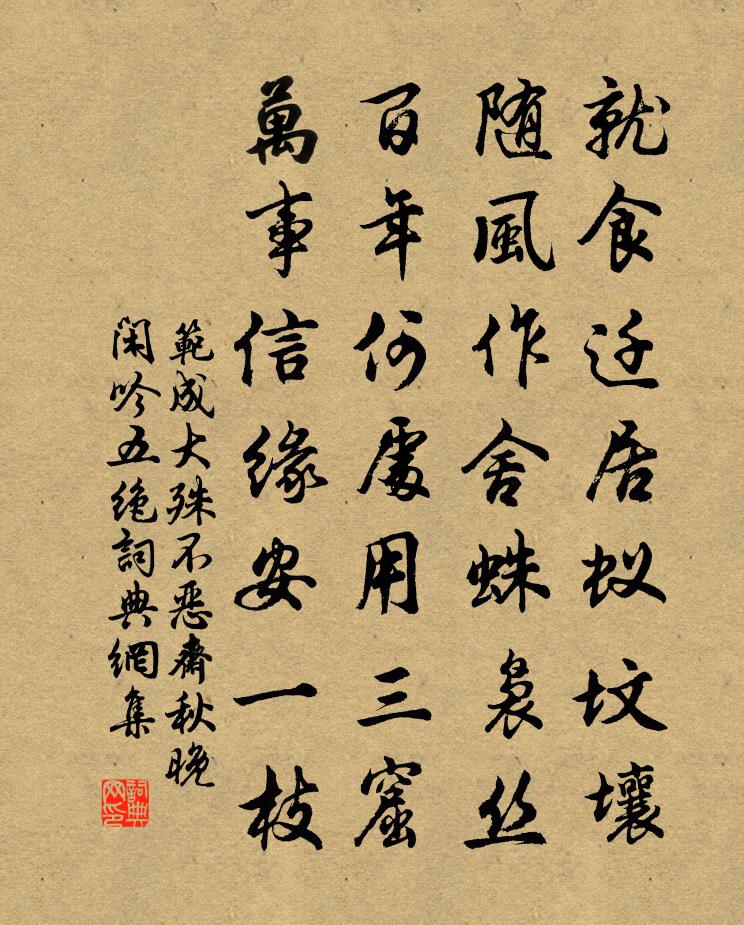 就食迁居蚁坟壤
随風作舍蛛袅丝
百年何處用三窟
萬事信缘安一枝
範成大殊不恶齋秋晚
闲吟五绝詞典網集
詞典网印